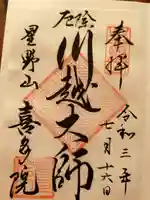 奉拝
令和三年
七月十六日
厄除
川越大師
星野山
喜多院